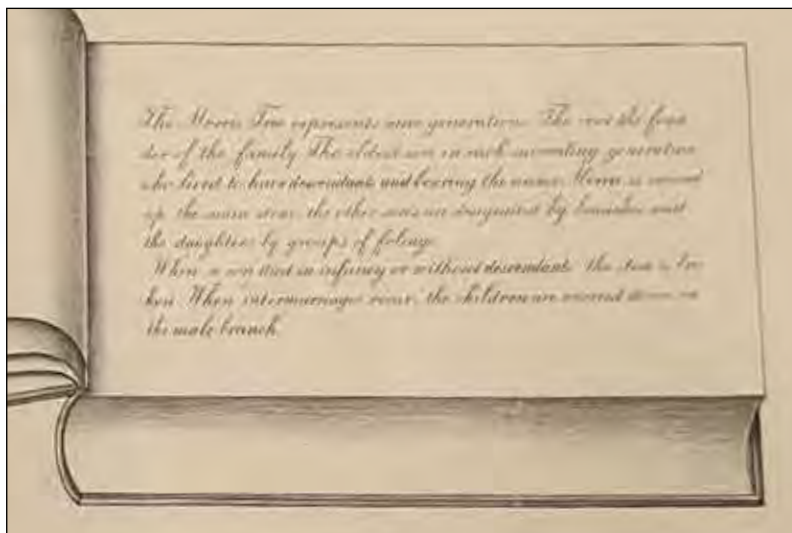 The Morris Tree represents nine generations. The root the foun
der of the family. The eldest son in each succeeding generation
who lived to have descendants and bearing the name Morris is carried
up the main stem, the other sons are designated by branches and
the daughters by groups of foliage.
When a son died in infancy or without descendants the stem is bro
ken. When intermarriages occur, the children are carried down on
the male branch.